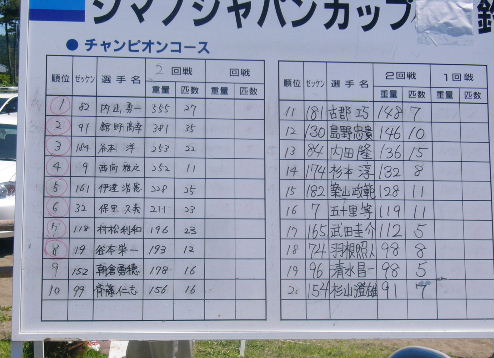 シマノジャパンカップ
● チャンピオンコース
順位 ゼッケン 選手名 2回戦 回戦
重量 匹数 重量 匹数
1 82 内山 勇一 555 27
2 91 舘野 高幸 381 35
3 104 谷本 洋 253 22
4 9 西岡 雅之 252 11
5 161 伊達 228 25
6 32 保里 久義 211 23
7 118 村松 利和 196 23
8 19 谷本 栄一 193 12
9 152 朝倉 178 16
10 99 斉藤 仁志 156 16
順位 ゼッケン 選手名 2回戦 1回戦
重量 匹数 重量 匹数
11 181 古郡 巧 148 7
12 130 島野 忠貴 146 10
13 84 内田 隆 136 15
14 174 杉本 淳 132 8
15 182 築山 政範 128 11
16 7 五十里 119 11
17 165 武田 圭介 112 5
18 74 羽根 照人 98 8
19 96 清水 昌一 98 5
20 154 杉山 澄雄 91 7